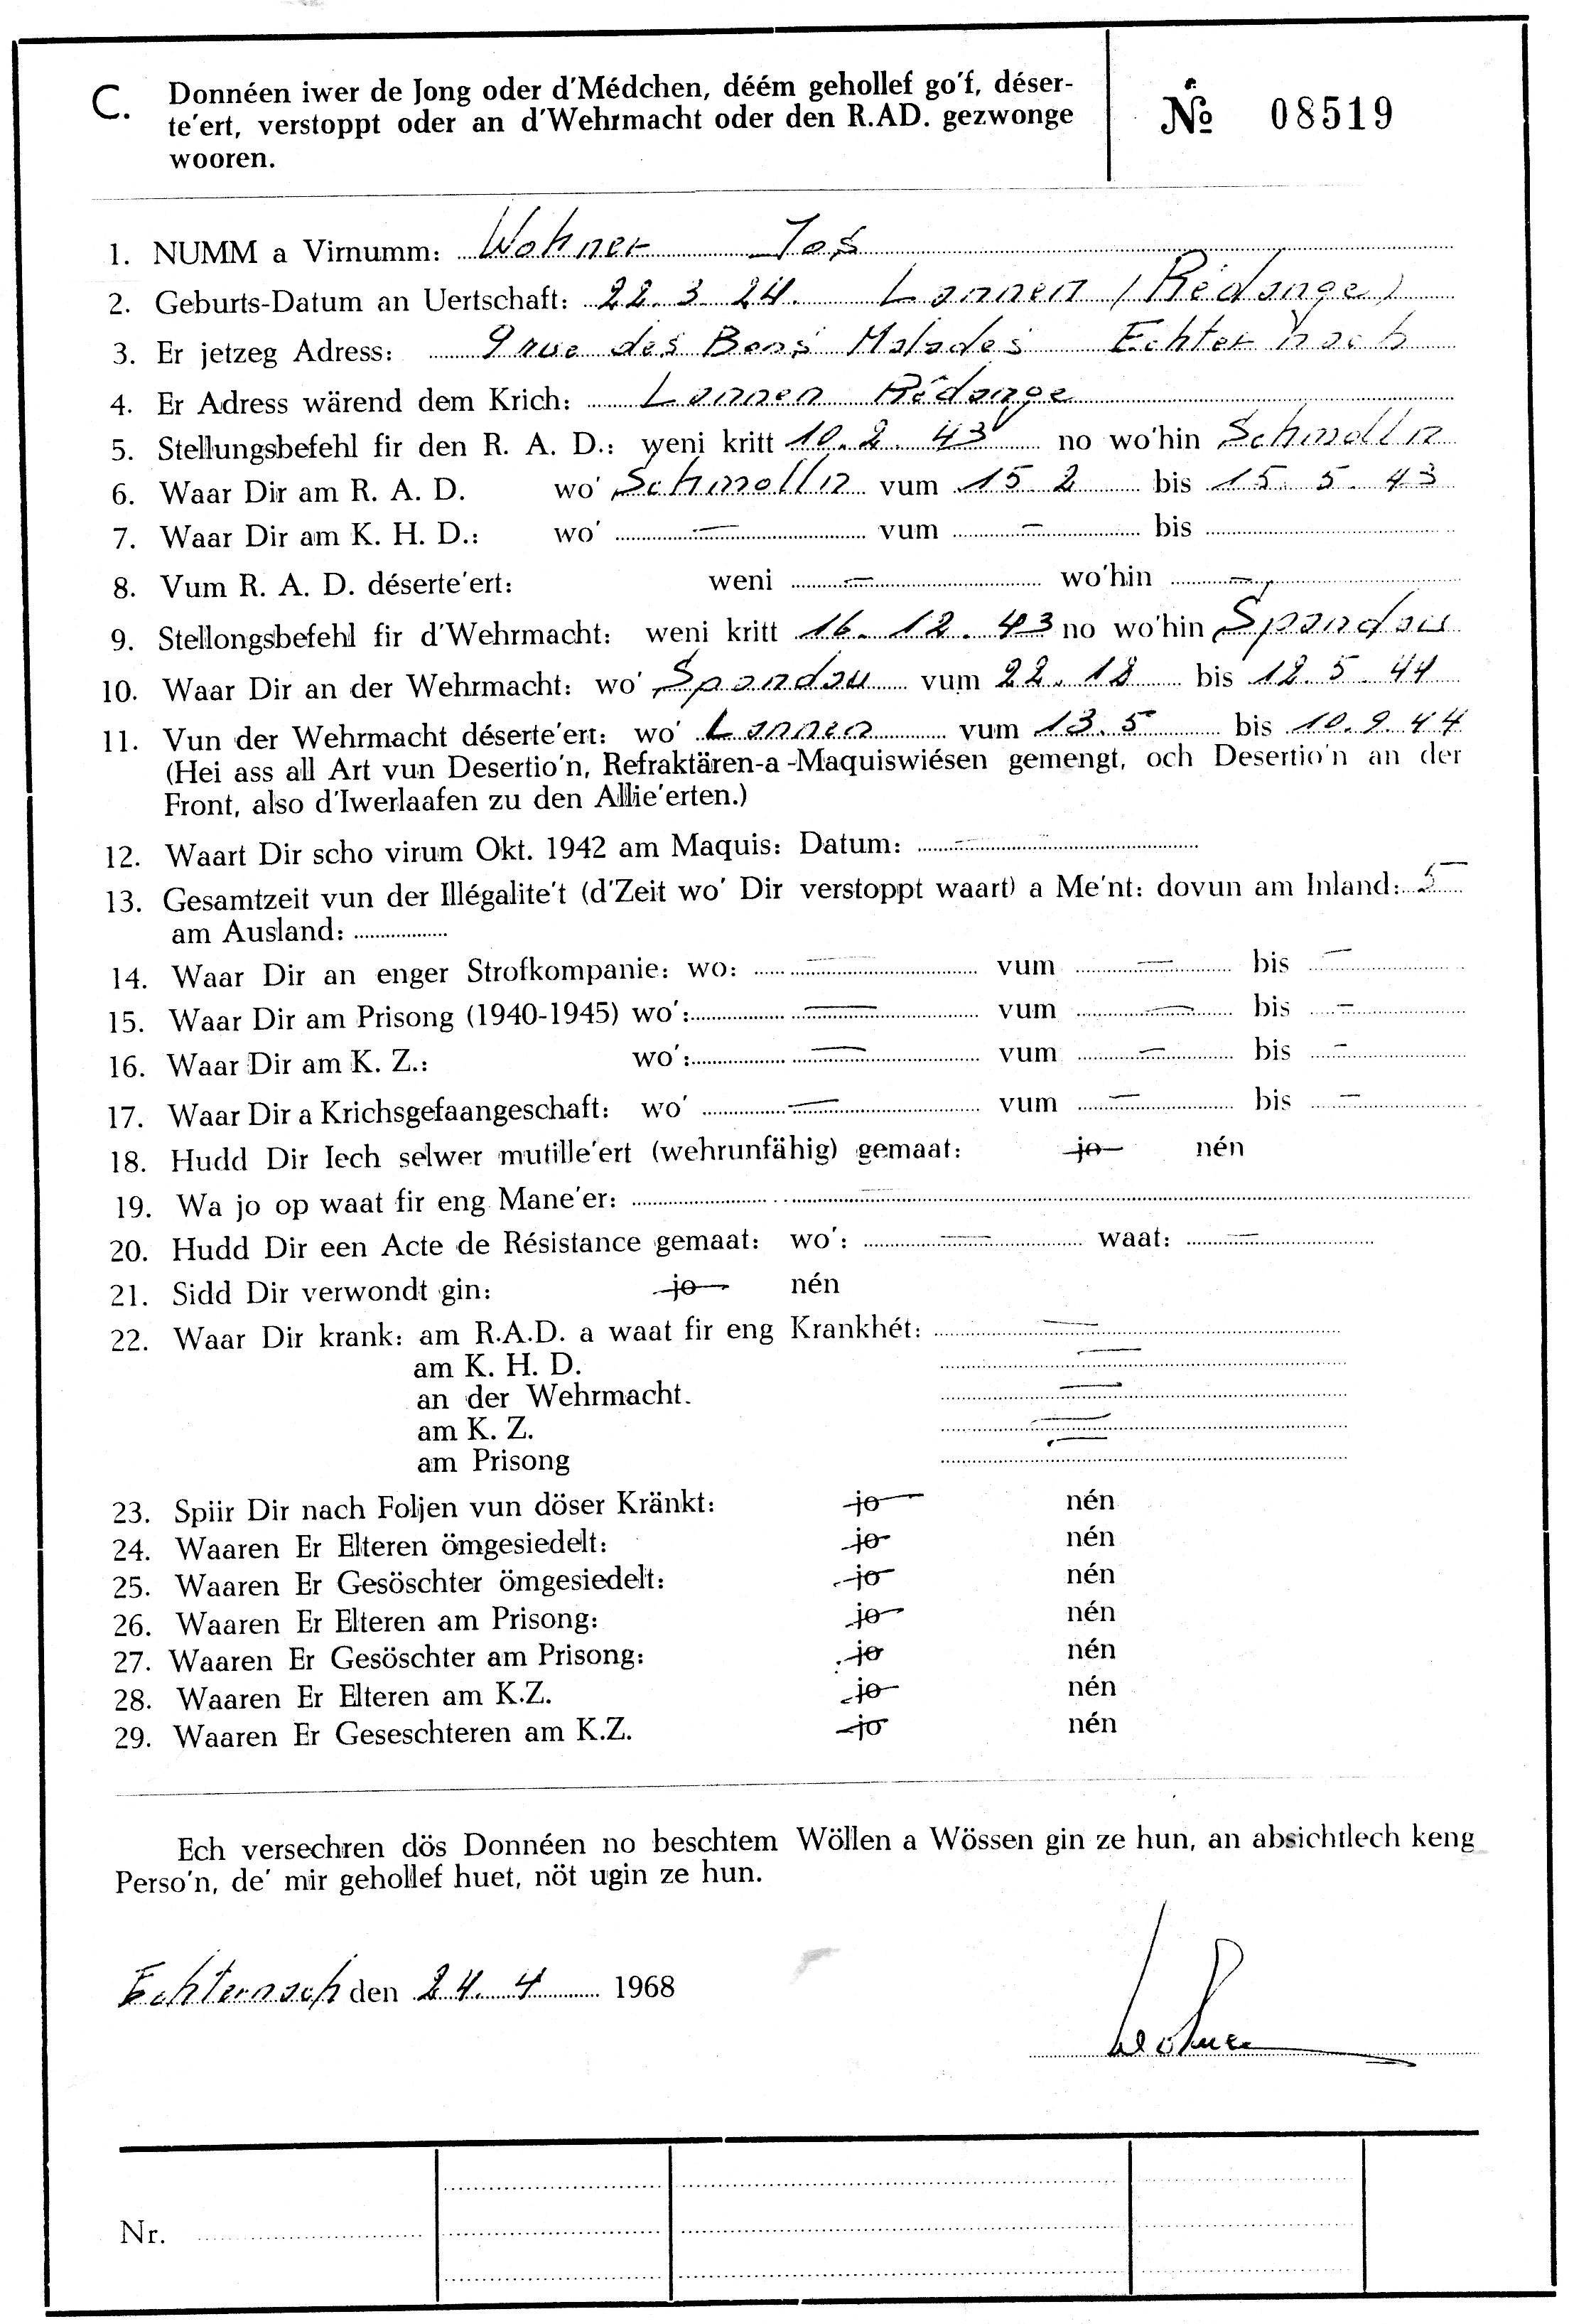 C. Donnéen iwer de Jong oder d'Médchen, déém gehollef go'f, déser-
te'ert, verstoppt oder an d'Wehrmacht oder den R.AD. gezwonge
wooren.
№ 08519
1. NUMM a Virnumm: Wohner Jos
2. Geburts-Datum an Uertschaft: 22. 3. 24. Lannen (Rédange)
3. Er jetzeg Adress: 9 rue des Bons Malades Echternach
4. Er Adress wärend dem Krich: Lannen Rédange
5. Stellungsbefehl fir den R. A. D.: weni kritt 10. 2. 43 no wo'hin Schmolln
6. Waar Dir am R. A. D. wo' Schmolln vum 15. 2 bis 15. 5. 43
7. Waar Dir am K. H. D.: wo' — vum — bis
8. Vum R. A. D. déserte'ert: weni — wo'hin —
9. Stellongsbefehl fir d'Wehrmacht: weni kritt 16. 12. 43 no wo'hin Spandau
10. Waar Dir an der Wehrmacht: wo' Spandau vum 22. 12 bis 12. 5. 44
11. Vun der Wehrmacht déserte'ert: wo' Lannen vum 13. 5 bis 10. 9. 44
(Hei ass all Art vun Desertio'n, Refraktären-a-Maquiswiésen gemengt, och Desertio'n an der
Front, also d'Iwerlaafen zu den Allie'erten.)
12. Waart Dir scho virum Okt. 1942 am Maquis: Datum: —
13. Gesamtzeit vun der Illégalite't (d'Zeit wo' Dir verstoppt waart) a Me'nt: dovun am Inland: 5
am Ausland:
14. Waar Dir an enger Strofkompanie: wo: — vum — bis —
15. Waar Dir am Prisong (1940-1945) wo': — vum — bis —
16. Waar Dir am K. Z.: wo': — vum — bis —
17. Waar Dir a Krichsgefaangeschaft: wo' — vum — bis —
18. Hudd Dir Iech selwer mutille'ert (wehrunfähig) gemaat: jo nén
19. Wa jo op waat fir eng Mane'er: —
20. Hudd Dir een Acte de Résistance gemaat: wo': — waat: —
21. Sidd Dir verwondt gin: jo nén
22. Waar Dir krank: am R.A.D. a waat fir eng Krankhét: —
am K. H. D. —
an der Wehrmacht. —
am K. Z. —
am Prisong —
23. Spiir Dir nach Foljen vun döser Kränkt: jo nén
24. Waaren Er Elteren ömgesiedelt: jo nén
25. Waaren Er Gesöschter ömgesiedelt: jo nén
26. Waaren Er Elteren am Prisong: jo nén
27. Waaren Er Gesöschter am Prisong: jo nén
28. Waaren Er Elteren am K.Z. jo nén
29. Waaren Er Geseschteren am K.Z. jo nén
Ech versechren dös Donnéen no beschtem Wöllen a Wössen gin ze hun, an absichtlech keng
Perso'n, de' mir gehollef huet, nöt ugin ze hun.
Echternach den 24. 4 1968
Wohner
Nr.